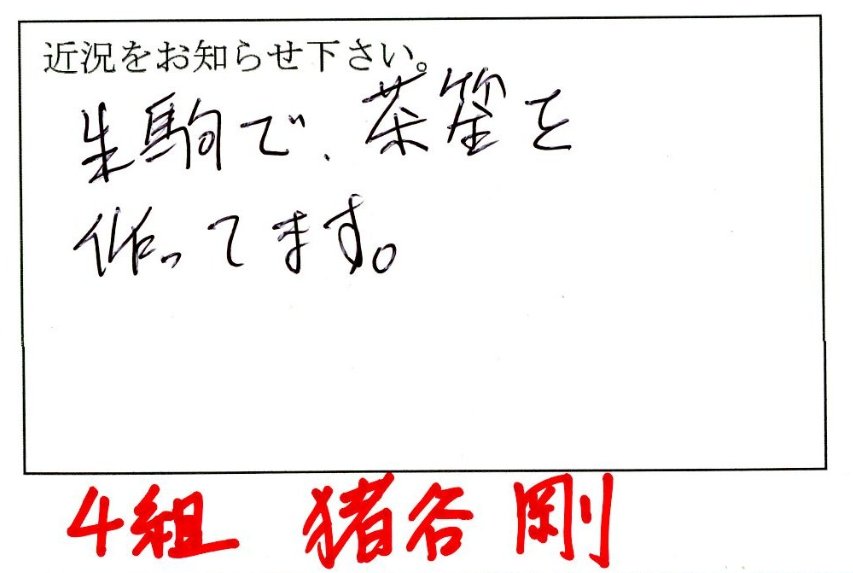 近況をお知らせ下さい。
生駒で、茶筌を
作ってます。
4組 猪谷 剛